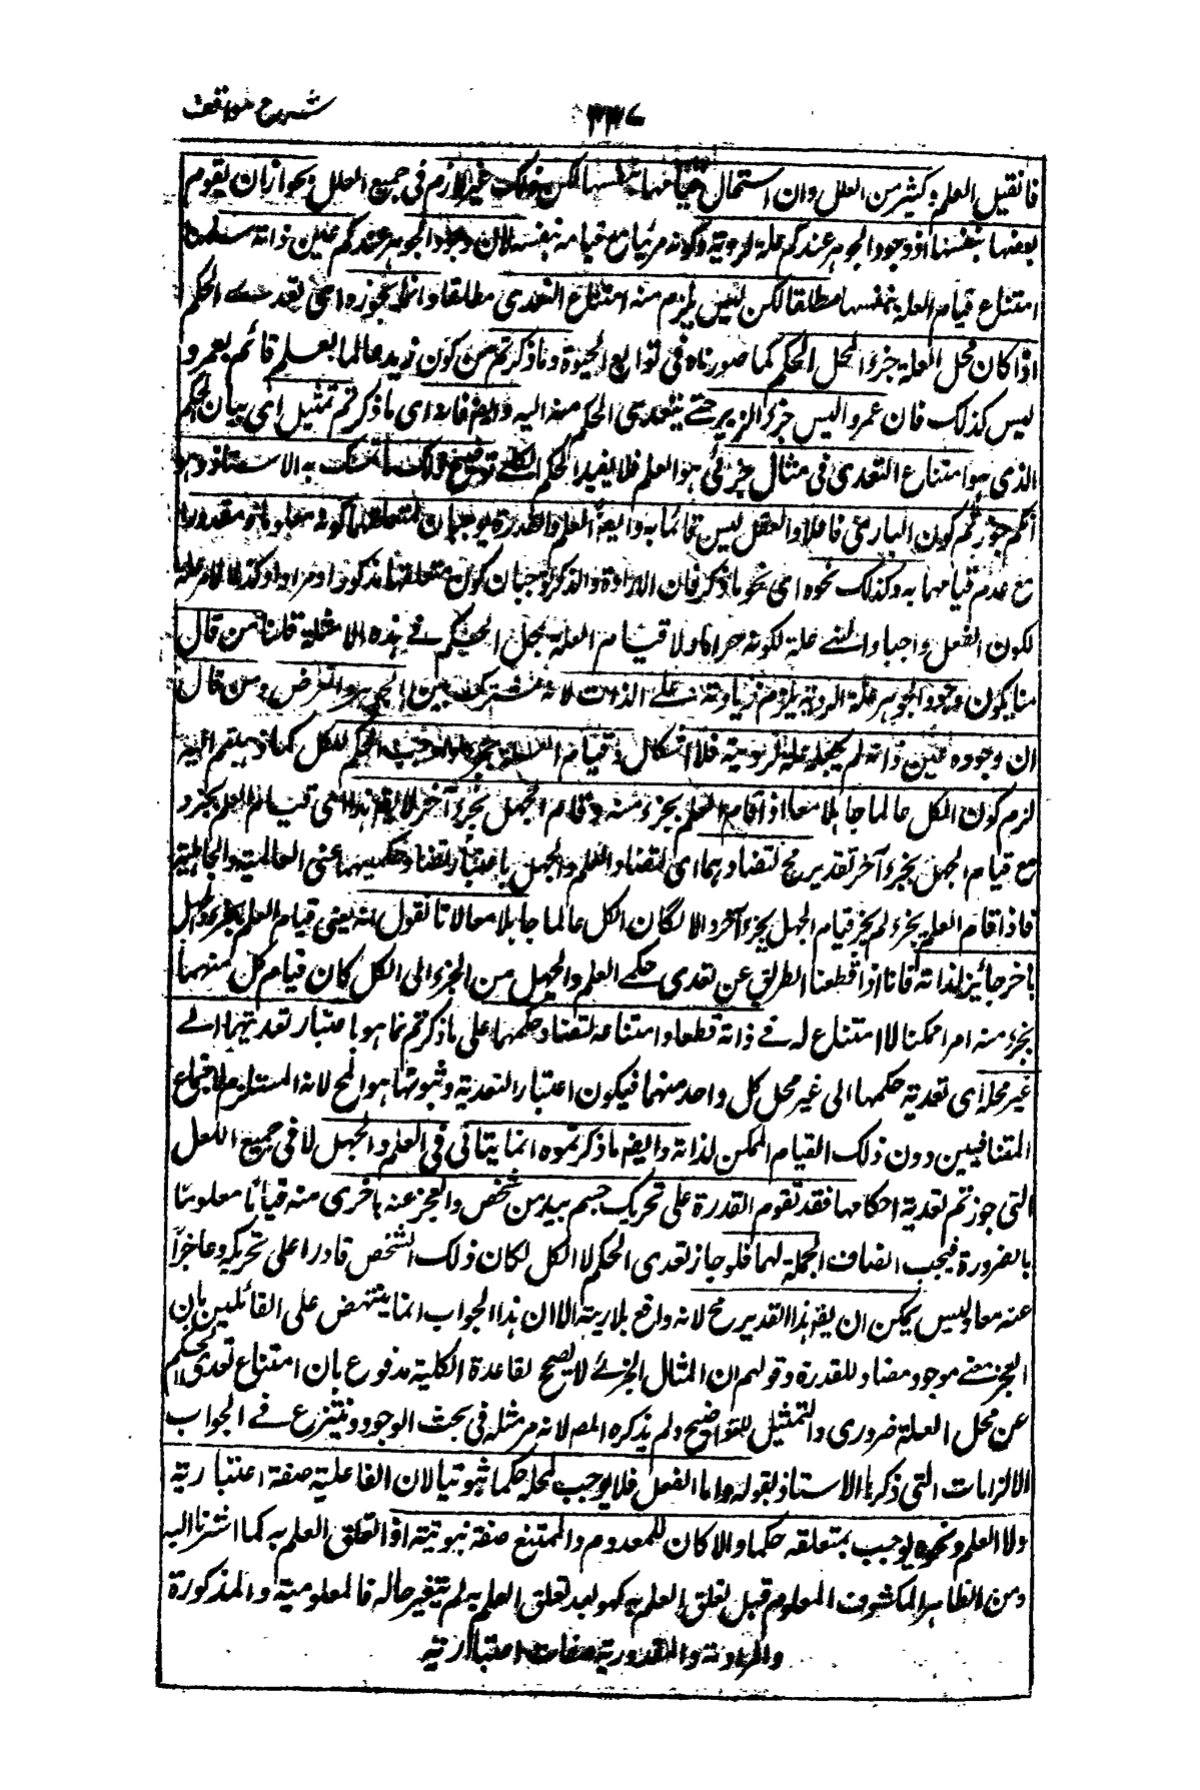 شرح مواقف
٢٣٧
فانقيل العلم وكثير من العلل وان استحال قيامها بنفسها لكن ذلك غير لازم في جميع العلل بجواز ان يقوم
بعضها بنفسها اذ وجود الجوهر عندكم علة لرويته وكونه مرئيا مع قيامه بنفسه لان وجود الجوهر عندكم عين ذاته سلمنا
امتناع قيام العلة بنفسها مطلقا لكن ليس يلزم منه امتناع التعدى مطلقا وانما نجوزه اى تعدى الحكم
اذا كان محل العلة جزءا لمحل الحكم كما صورناه في توابع الحيوة وما ذكرتم من كون زيد عالما بعلم قائم بعمرو
ليس كذلك فان عمروا ليس جزء الزيد حتى يتعدى الحكم منه اليه وايضا فانه اى ما ذكرتم تمثيل اى بيان الحكم
الذى هو امتناع التعدى في مثال جزئى هو العلم فلا يفيد الحكم الكلى توضيح ذلك ما تمسك به الاستاذ وهو
انكم جوزتم كون البارى فاعلا والفعل ليس قائما به وايضا العلم والقدرة يوجبان لمتعلقهما كونه معلوما ومقدورا
مع عدم قيامهما به وكذلك نحوه اى نحو ما ذكر فان الارادة والذكر يوجبان كون متعلقهما مذكورا ومرادا وكذا الامر علة
لكون الفعل واجبا والنهى علة لكونه حراما ولا قيام العلة بمحل الحكم في هذه الامثلة قلنا من قال
منا بكون وجود الجوهر علة الروية يلزم زيادته على الذات لانه مشترك بين الجوهر والعرض ومن قال
ان وجوده عين ذاته لم يجعله علة للروية فلا اشكال وقيام العلة بجزء لو اوجب الحكم للكل كما ذهبتم اليه
لزم كون الكل عالما جاهلا معا اذا قام العلم بجزء منه وقام الجهل بجزء آخر لا يقال هذا اعنى قيام العلم بجزء
مع قيام الجهل بجزء آخر تقدير مح لتضادهما اى لتضاد العلم والجهل باعتبار تضاد حكميهما اعنى العالمية والجاهلية
فاذا قام العلم بجزء لم يجز قيام الجهل بجزء آخر والا لكان الكل عالما جاهلا معا لانا نقول انه يعنى قيام العلم بجزء والجهل
بآخر جائز لذاته فانا اذا قطعنا الطريق عن تعدى حكمى العلم والجهل من الجزء الى الكل كان قيام كل منهما
بجزء منه امرا ممكنا لا امتناع له في ذاته قطعا وامتناعه لتضاد حكمهما على ما ذكرتم انما هو باعتبار تعديتهما الى
غير محله اى تعدية حكمهما الى غير محل كل واحد منهما فيكون اعتبار التعدية وثبوتها هو المح لانه المستلزم لاجتماع
المتنافيين دون ذلك القيام الممكن لذاته وايضا ما ذكرتموه انما يتاتى في العلم والجهل لا في جميع العلل
التى جوزتم تعدية احكامها فقد تقوم القدرة على تحريك جسم بيد من شخص والعجز عنه باخرى منه قياما معلوما
بالضرورة فيجب اتصاف الجملة بهما فلو جاز تعدى الحكم الى الكل لكان ذلك الشخص قادرا على تحريكه وعاجزا
عنه معا وليس يمكن ان يقال هذا تقدير مح لانه واقع بلا ريبة الا ان هذا الجواب انما ينتهض على القائلين بان
العجز معنى موجود مضاد للقدرة وقولهم ان المثال الجزئى لا يصحح القاعدة الكلية مدفوع بان امتناع تعدى الحكم
عن محل العلة ضرورى والتمثيل للتوضيح ولم يذكره المص لانه مر مثله في بحث الوجود ويتنزع في الجواب
الالزامات التى ذكرها الاستاذ بقوله واما الفعل فلا يوجب لمحله حكما ثبوتيا لان الفاعلية صفة اعتبارية
ولا العلم ونحوه يوجب لمتعلقه حكما والا كان للمعدوم والممتنع صفة ثبوتية اذا تعلق العلم به كما اشرنا اليه
ومن الظاهر المكشوف المعلوم قبل تعلق العلم به كهو بعد تعلق العلم به لم يتغير حاله فالمعلومية والمذكورة
والمرادية والمقدورية صفات اعتبارية